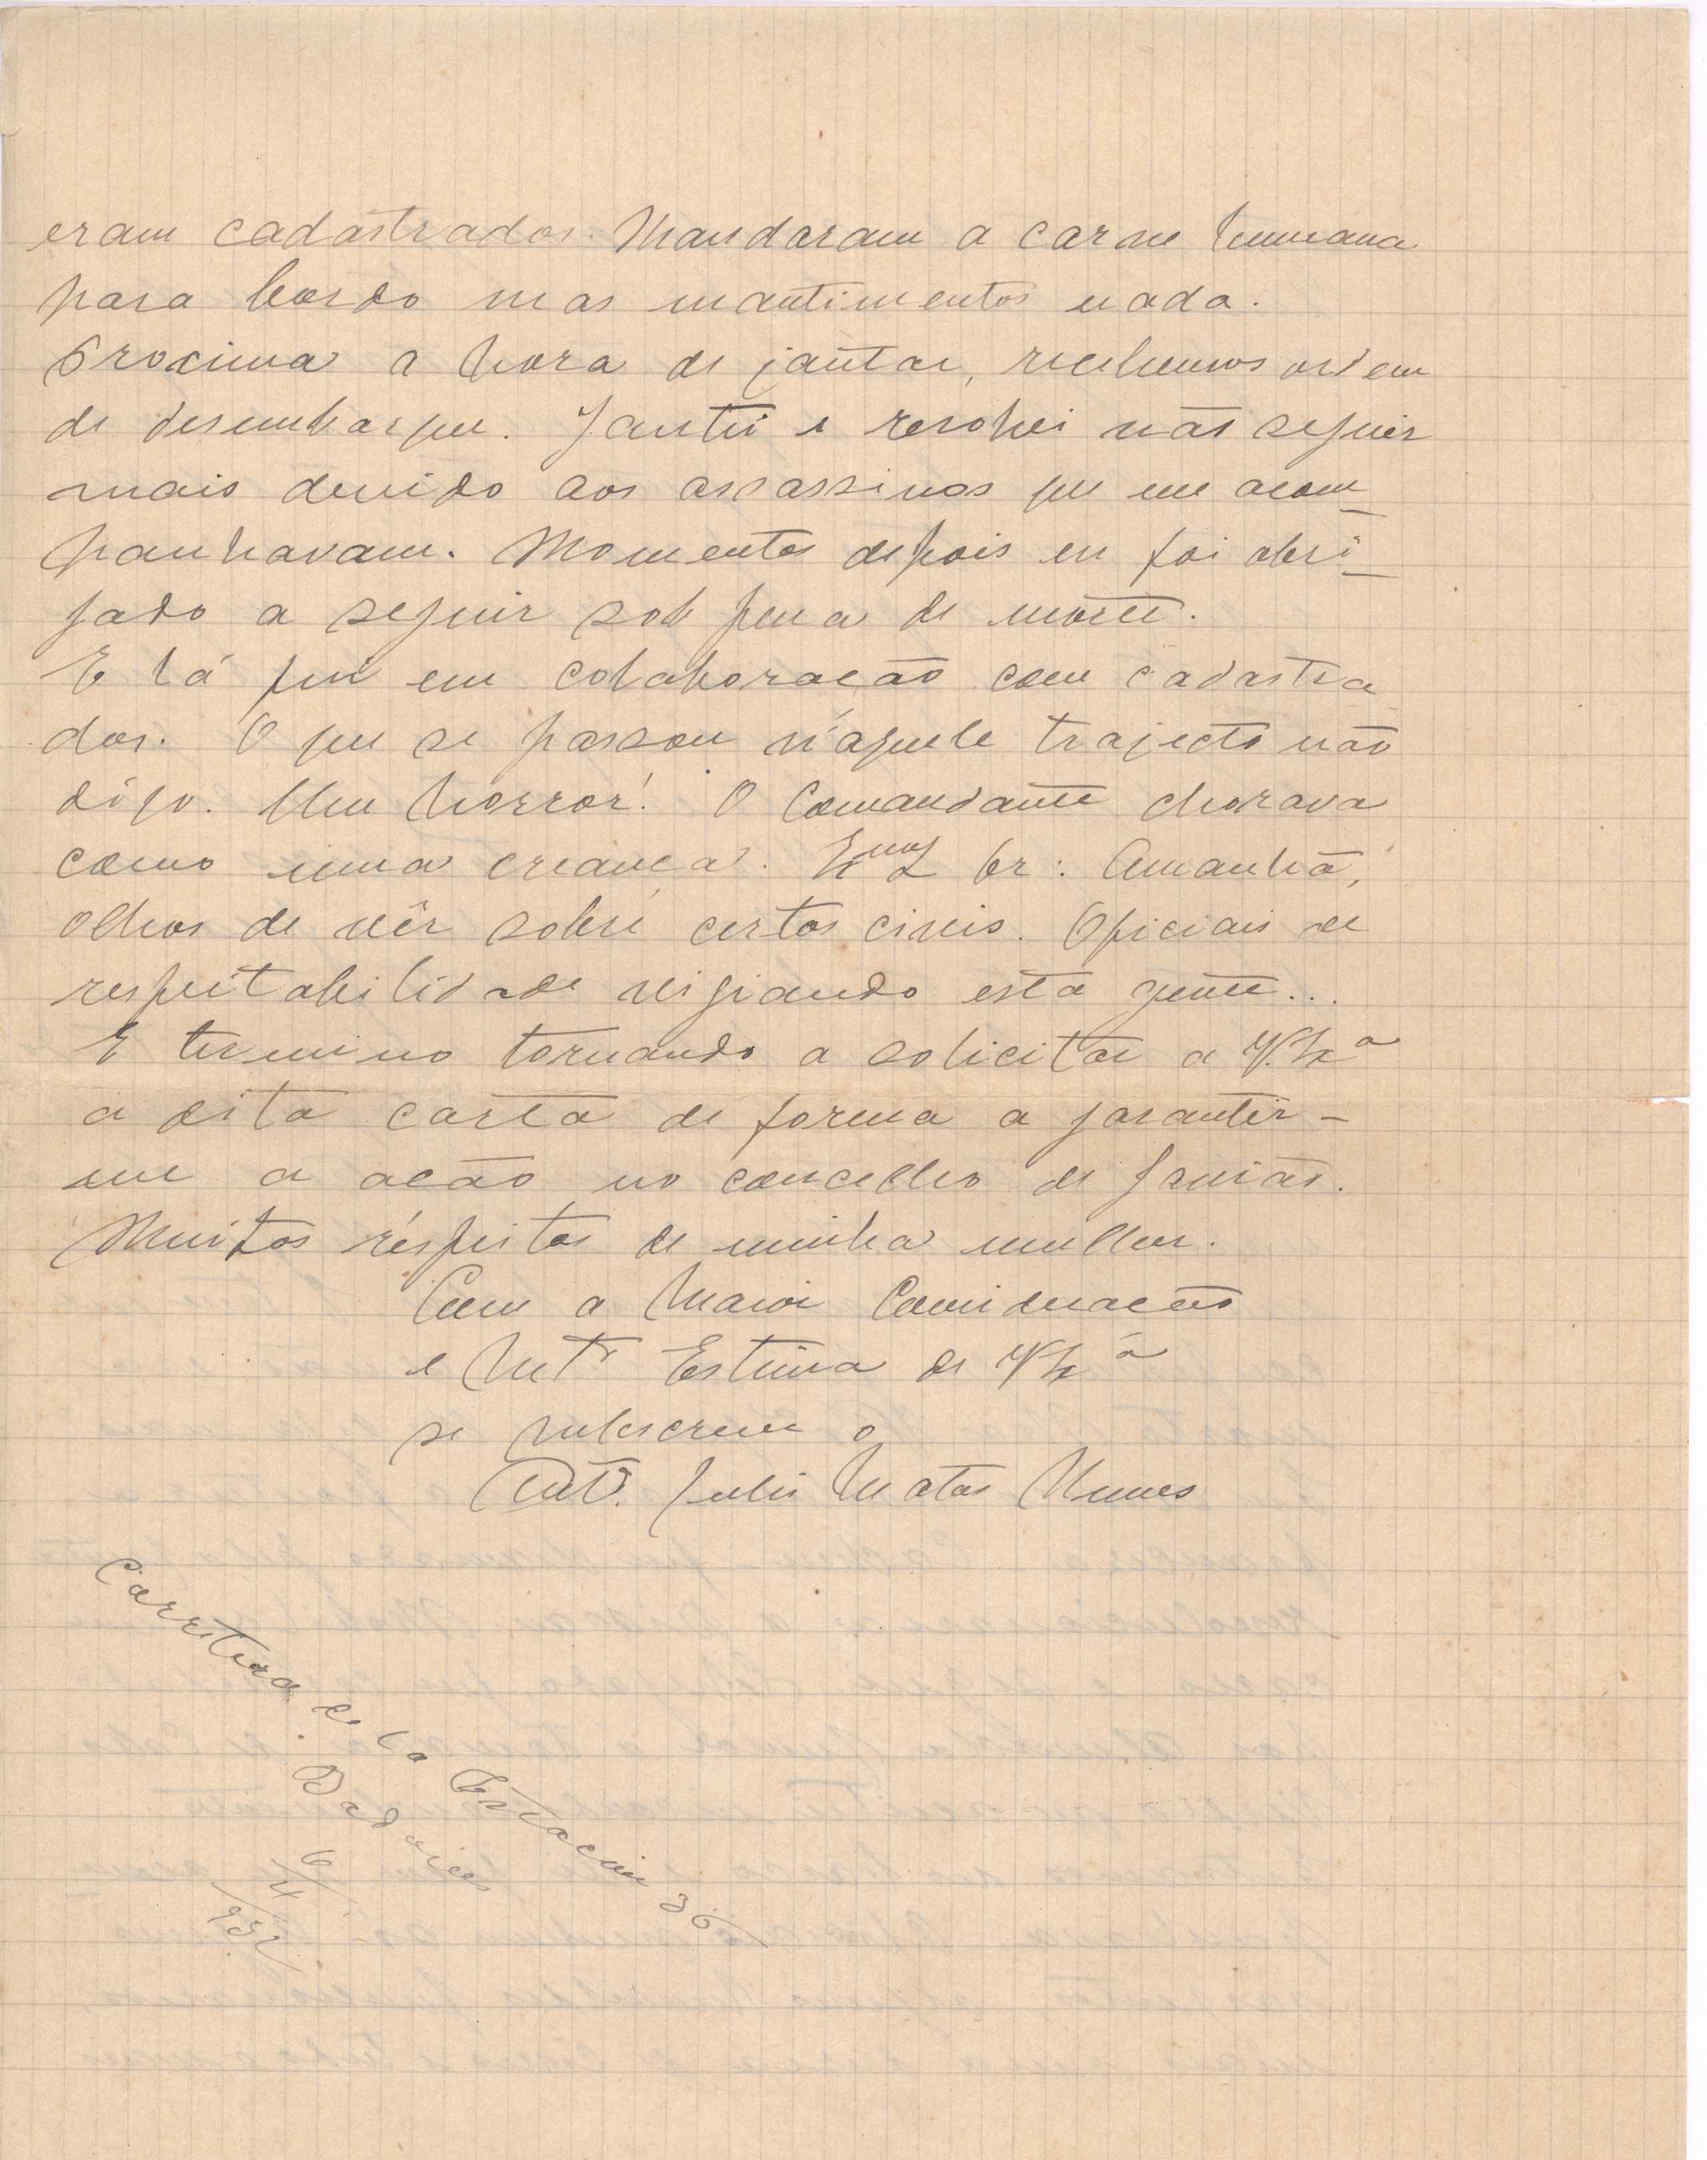 eram cadastrados. Mandaram a carne humana
para bordo mas mantimentos nada.
Proxima a hora de jantar, recebemos ordem
de desembarque. Jantei e resolvi não seguir
mais devido aos assassinos que me acom_
panhavam. Momentos depois eu foi obri_
gado a seguir sob pena de morte.
E lá fui em colaboração com cadastra
dos. O que se passou n'aquele trajecto não
digo. Um horror! O Comandante chorava
como uma creança. Exmo Sr: Amanhã,
olhos de vêr sobre certos civis. Oficiais de
respeitabilidade vigiando esta gente...
E termino tornando a solicitar a V. Exa
a dita carta de forma a garantir-
me a acão no concelho de
Muitos respeitos de minha mulher.
Com a Maior Consideracão
e Mta Estima de V Exa
se subscreve o
Julio Matos Nunes
Carretera de la Estacion 36
Badajoz
6/4/931